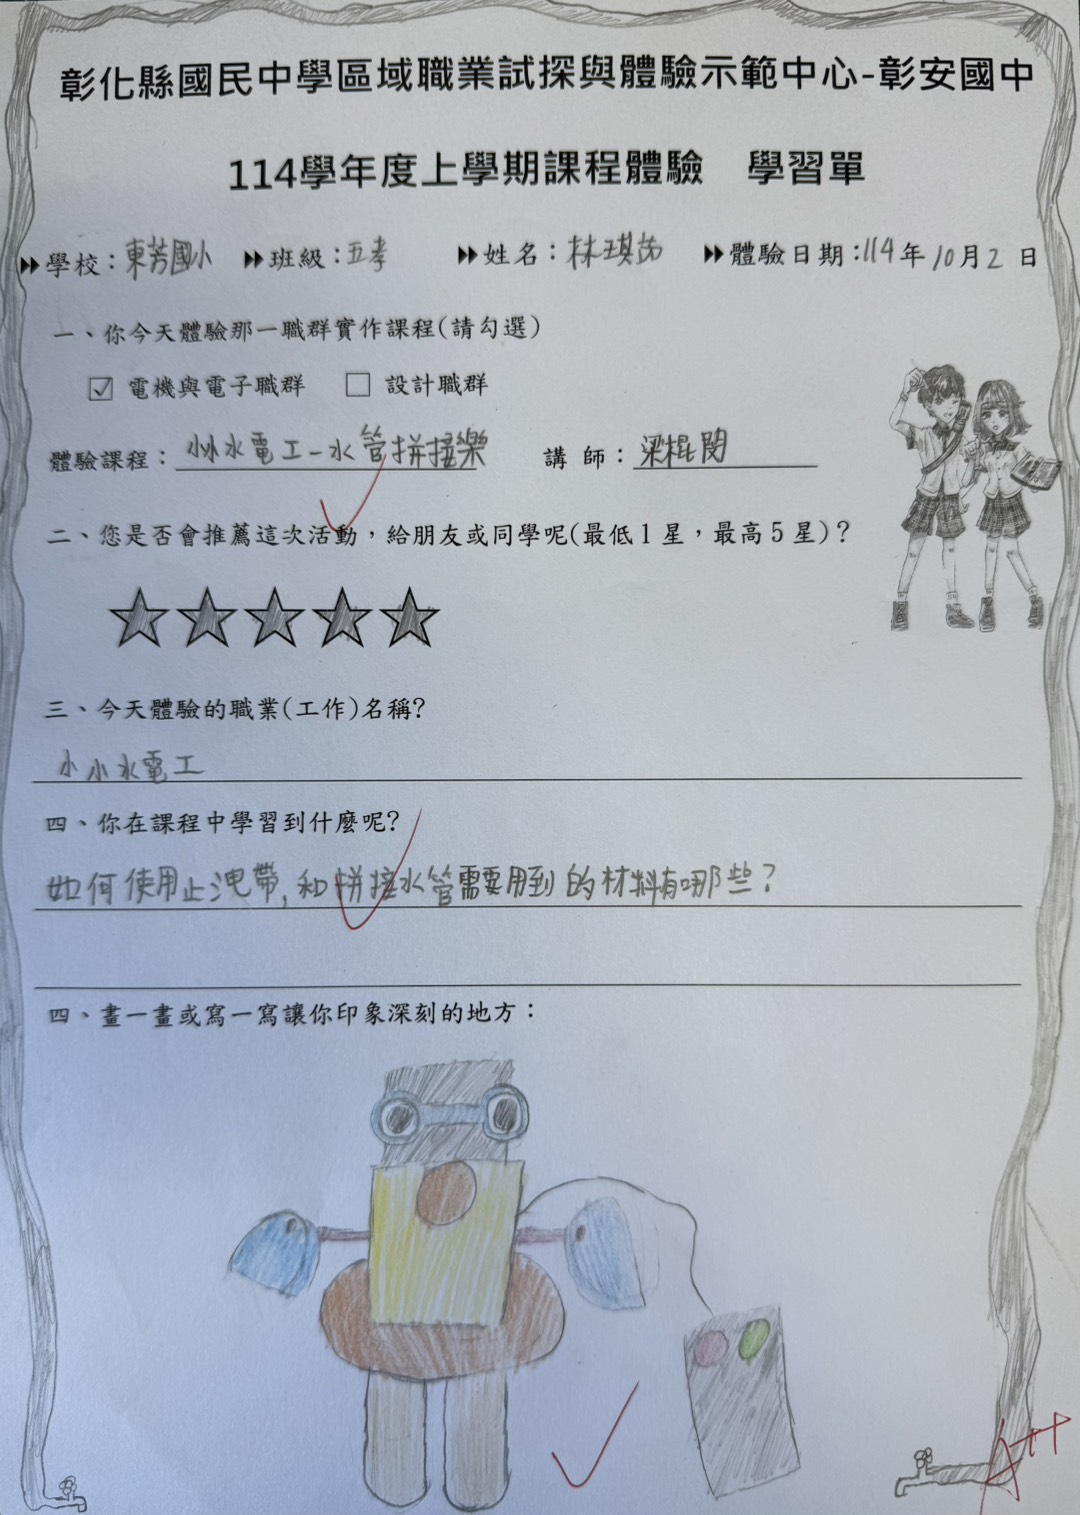 彰化縣國民中學區域職業試探與體驗示範中心-彰安國中
114學年度上學期課程體驗 學習單
學校：東芳國小 班級：五孝 姓名：林琪 體驗日期：114年10月2日
一、你今天體驗那一職群實作課程(請勾選)
☑ 電機與電子職群 □ 設計職群
體驗課程：小小水電工-水管拼接樂 講 師：梁棍閔
二、您是否會推薦這次活動，給朋友或同學呢(最低1星，最高5星)？
三、今天體驗的職業(工作)名稱?
小小水電工
四、你在課程中學習到什麼呢?
如何使用止洩帶,和拼接水管需要用到的材料有哪些?
四、畫一畫或寫一寫讓你印象深刻的地方：
A++